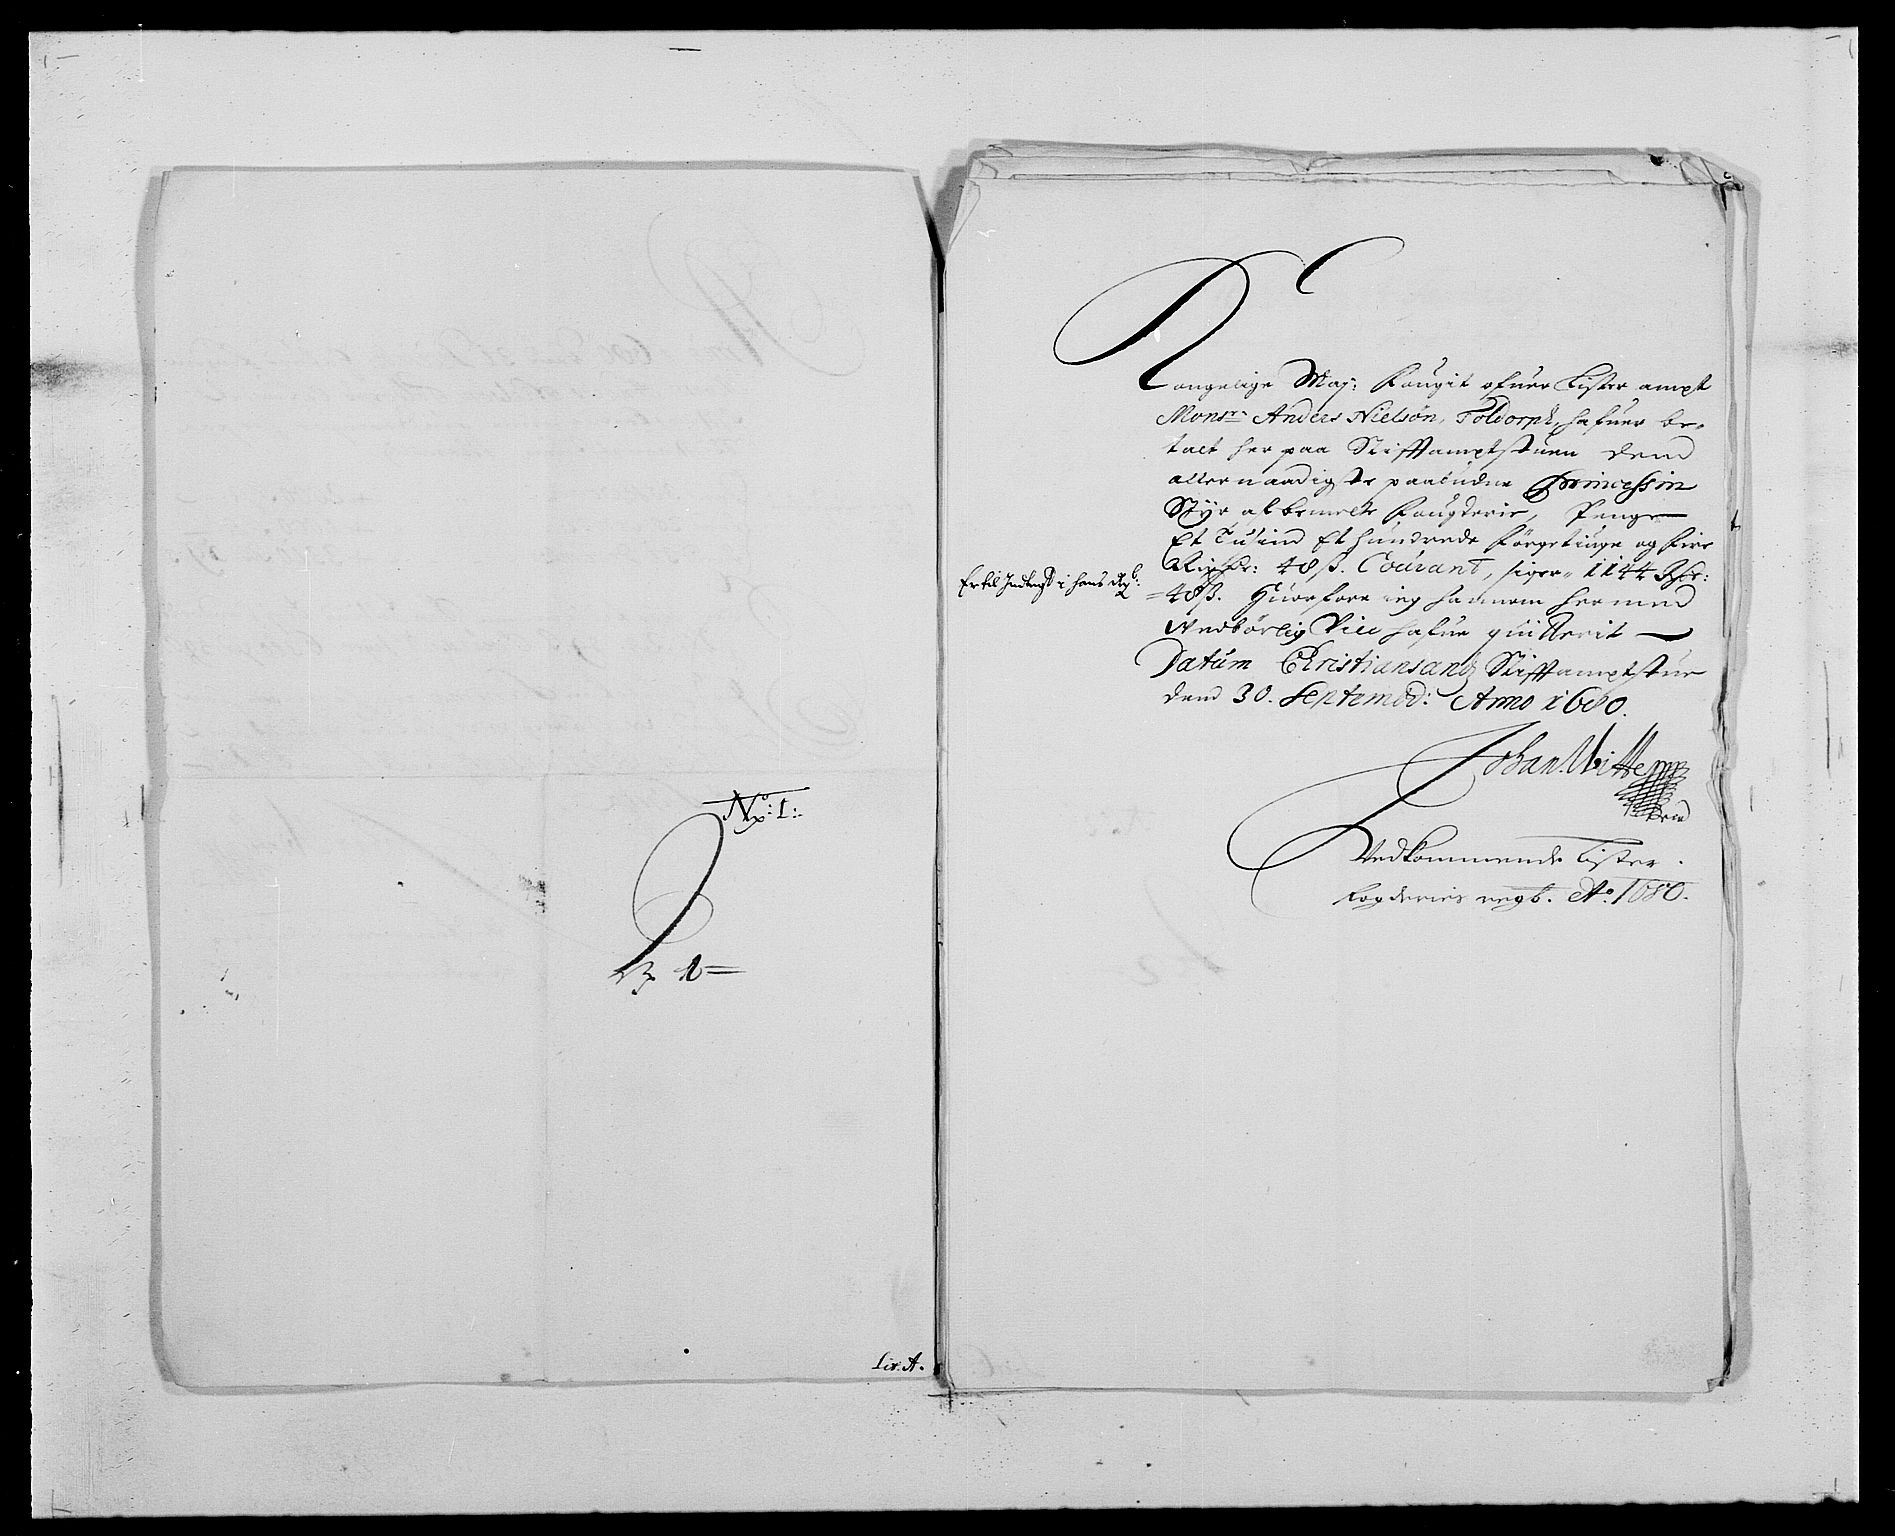 No: 1:
Lit. A.
Kongelige Maj: Fougit ofuer Lister ampt
Monsr Anders Nielsøn, Toldorph, hafuer be-
talt her paa Stifftamptstuen dend
allernaadigste paabudne Princessin
Styr af bemelte Fougderie, Penge
Et Tusind Et hundrede Förgetiuge og fire
Rixdr: 48 ß. Courant, siger 1144 Rdr:
48 ß. Huorfore ieg hannem hermed
Wedbörlig Viis hafue quitterit
Datum Christiansands Stifftamptstue
dend 30. Septembr: Anno 1680.
Er til Indtegt i hans Regb:
Johan Witte
Vedkommende Lister
fogderies regb. Ao. 1680.